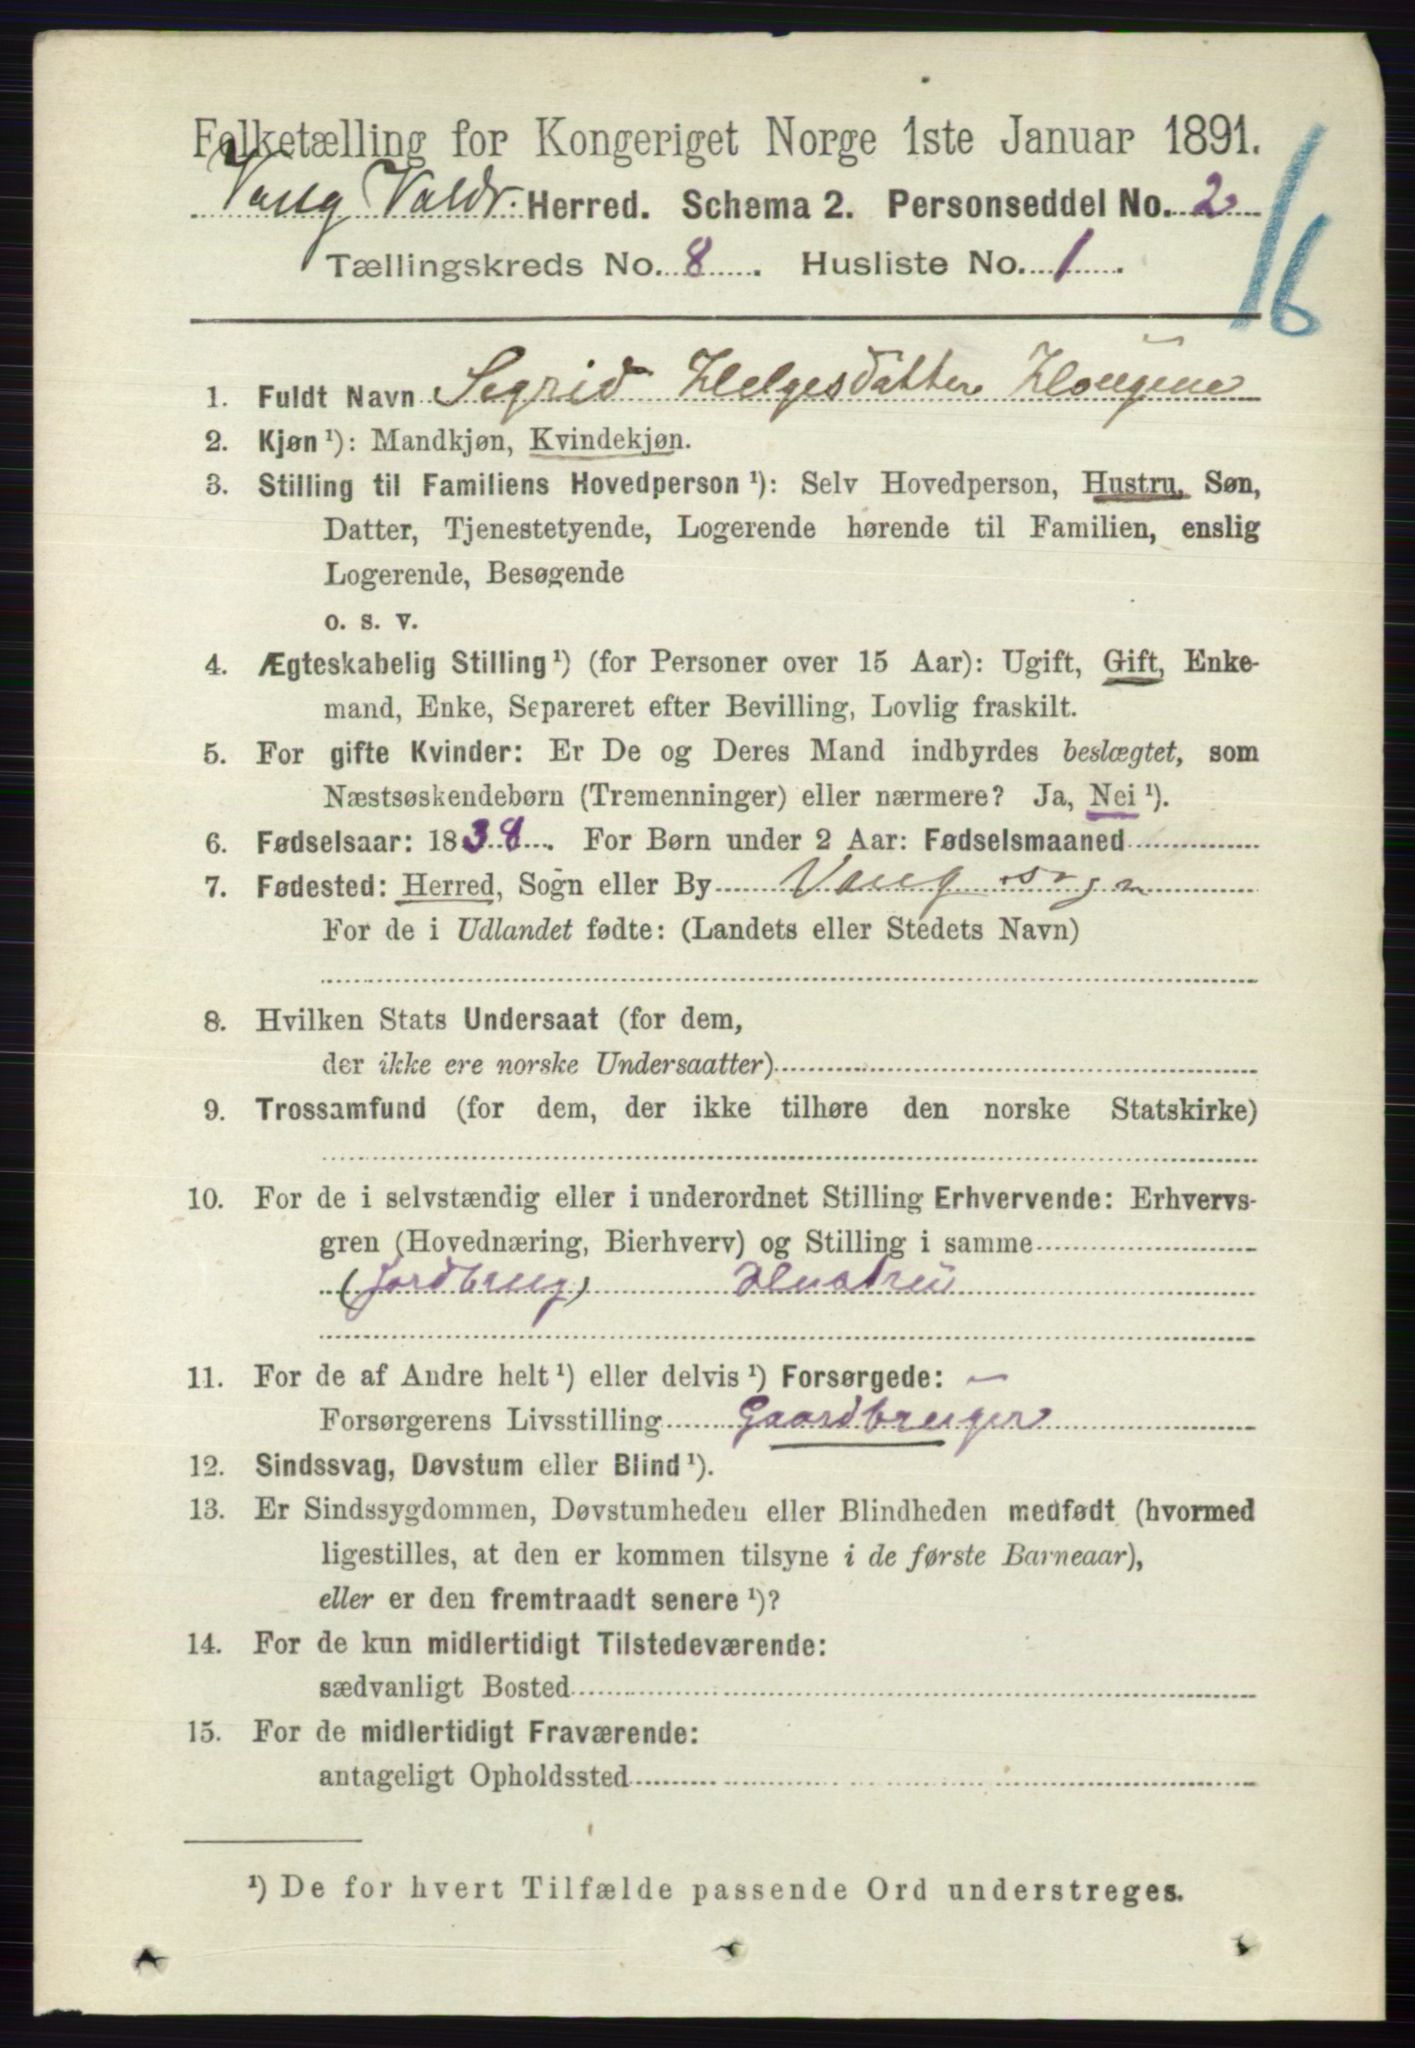 Folketælling for Kongeriget Norge 1ste Januar 1891.
Vang Valdr. Herred. Schema 2. Personseddel No. 2
Tællingskreds No. 8. Husliste No. 1.
16
1. Fuldt Navn Sigrid Helgesdatter Hougene
2. Kjøn ¹): Mandkjøn, Kvindekjøn.
3. Stilling til Familiens Hovedperson ¹): Selv Hovedperson, Hustru, Søn,
Datter, Tjenestetyende, Logerende hørende til Familien, enslig
Logerende, Besøgende
o. s. v.
4. Ægteskabelig Stilling ¹) (for Personer over 15 Aar): Ugift, Gift, Enke-
mand, Enke, Separeret efter Bevilling, Lovlig fraskilt.
5. For gifte Kvinder: Er De og Deres Mand indbyrdes beslægtet, som
Næstsøskendebørn (Tremenninger) eller nærmere? Ja, Nei ¹).
6. Fødselsaar: 1838. For Børn under 2 Aar: Fødselsmaaned
7. Fødested: Herred, Sogn eller By Vang sogn
For de i Udlandet fødte: (Landets eller Stedets Navn)
8. Hvilken Stats Undersaat (for dem,
der ikke ere norske Undersaatter)
9. Trossamfund (for dem, der ikke tilhøre den norske Statskirke)
10. For de i selvstændig eller i underordnet Stilling Erhvervende: Erhvervs-
gren (Hovednæring, Bierhverv) og Stilling i samme
(Jordbrug) Hustru
11. For de af Andre helt ¹) eller delvis ¹) Forsørgede: —
Forsørgerens Livsstilling Gaardbruger
12. Sindssvag, Døvstum eller Blind ¹).
13. Er Sindssygdommen, Døvstumheden eller Blindheden medfødt (hvormed
ligestilles, at den er kommen tilsyne i de første Barneaar),
eller er den fremtraadt senere ¹)?
14. For de kun midlertidigt Tilstedeværende:
sædvanligt Bosted
15. For de midlertidigt Fraværende:
antageligt Opholdssted
¹) De for hvert Tilfælde passende Ord understreges.